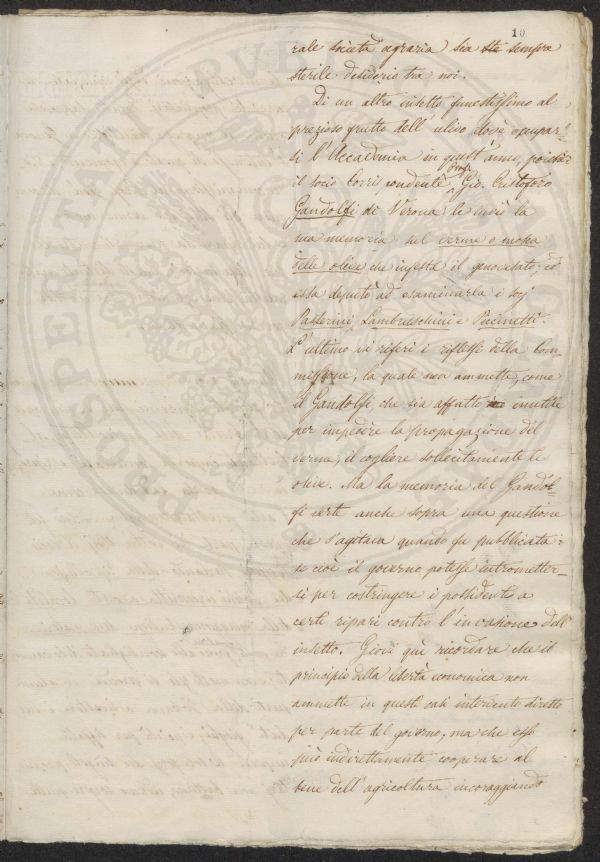 10
rale società agraria sia sempre
sterile desiderio tra noi.
Di un altro insetto funestissimo al
prezioso frutto dell'ulivo dové occupar-
si l'Accademia in quest'anno, poiché
il socio Corrispondente Prof. Gio. Cristoforo
Gandolfi di Verona le inviò la
sua memoria sul verme o mosca
delle olive che infesta il genovesato; ed
essa deputò ad esaminarla i socj
Passerini Lambruschini e Puccinotti.
L'ultimo vi riferì i riflessi della Com-
missione, la quale non ammette, come
il Gandolfi, che sia affatto inutile
per impedire la propagazione del
verme, il cogliere sollecitamente le
olive. Ma la memoria del Gandol-
fi verte anche sopra una questione
che s'agitava quando fu pubblicata:
se cioè il governo potesse intrometter-
si per costringere i possidenti a
certi ripari contro l'invasione dell'
insetto. Giovi quì ricordare che il
principio della libertà economica non
ammette in questi casi intervento diretto
per parte del governo; ma che esso
può indirettamente cooperare al
bene dell'agricoltura incoraggiando
PROSPERITATI PUB